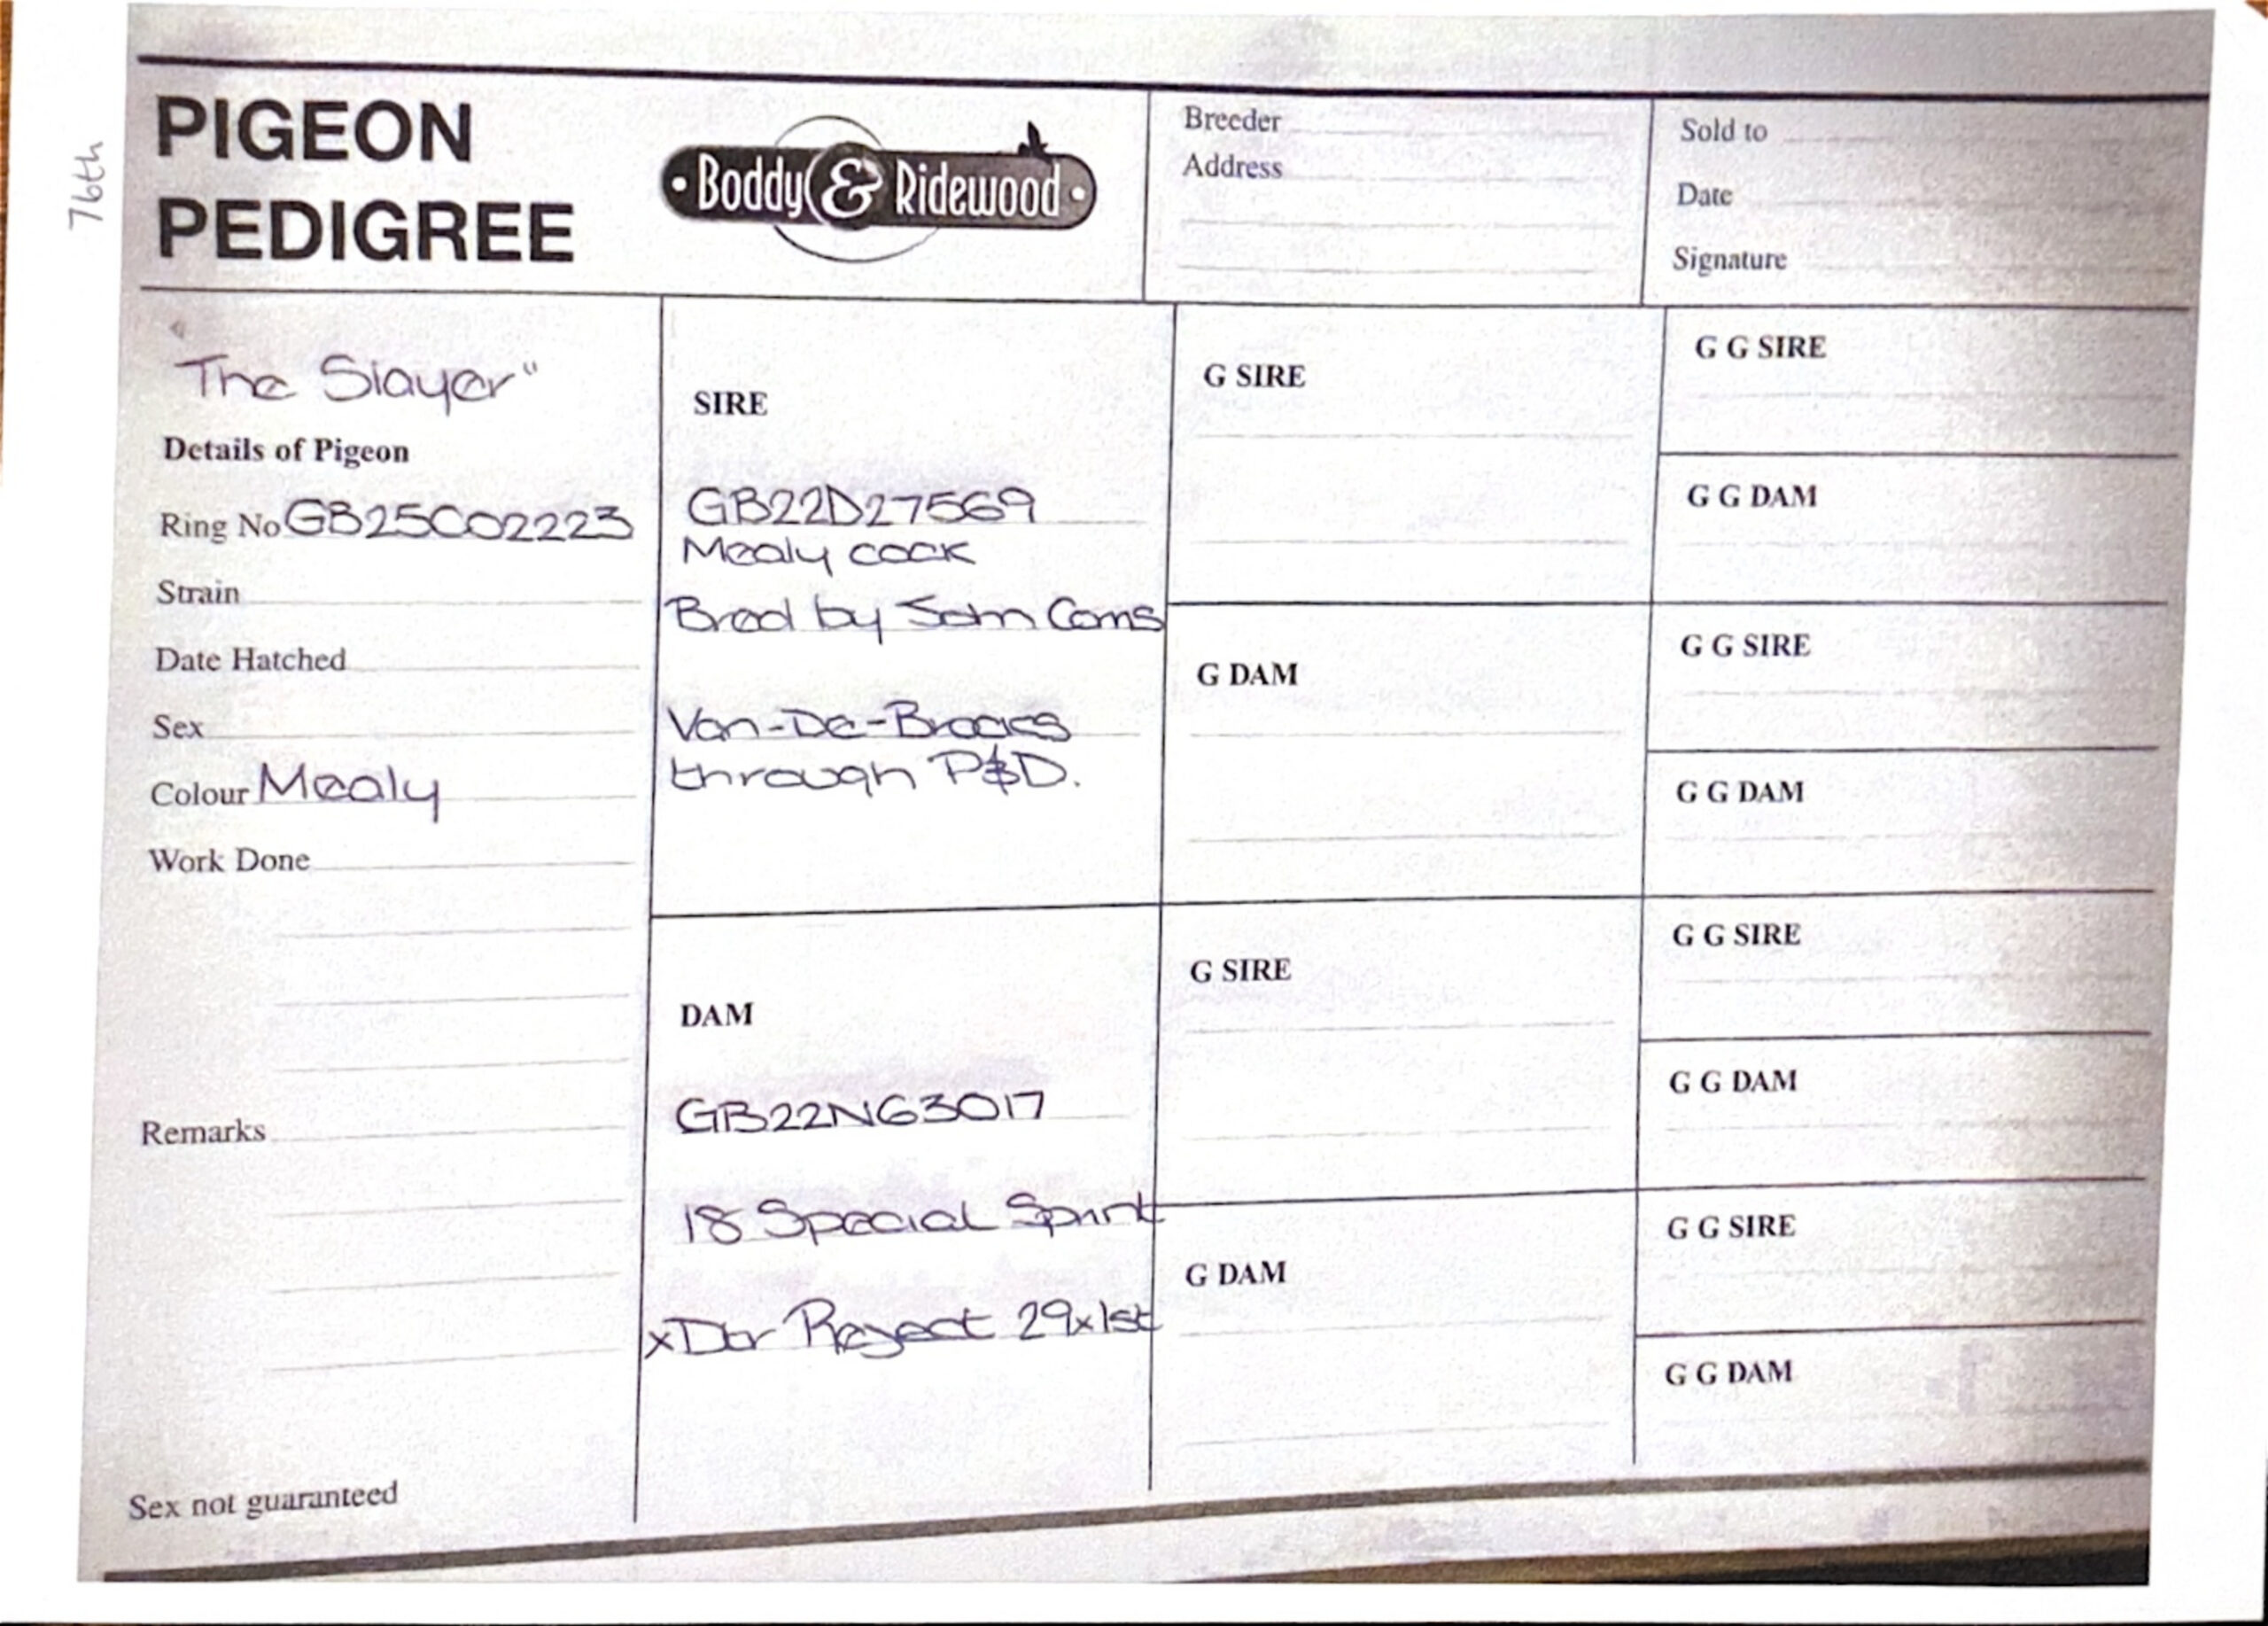 76th
PIGEON
PEDIGREE
• Boddy & Ridewood •
Breeder
Address
Sold to
Date
Signature
"The Slayer"
Details of Pigeon
Ring No GB25C02223
Strain
Date Hatched
Sex
Colour Mealy
Work Done
Remarks
Sex not guaranteed
SIRE
GB22D27569
Mealy cock
Bred by Sam Cams
Van-De-Brocks
through P&D.
DAM
GB22N63017
18 Special Sprint
x Dtr Reject 29x1st
G SIRE
G DAM
G SIRE
G DAM
G G SIRE
G G DAM
G G SIRE
G G DAM
G G SIRE
G G DAM
G G SIRE
G G DAM